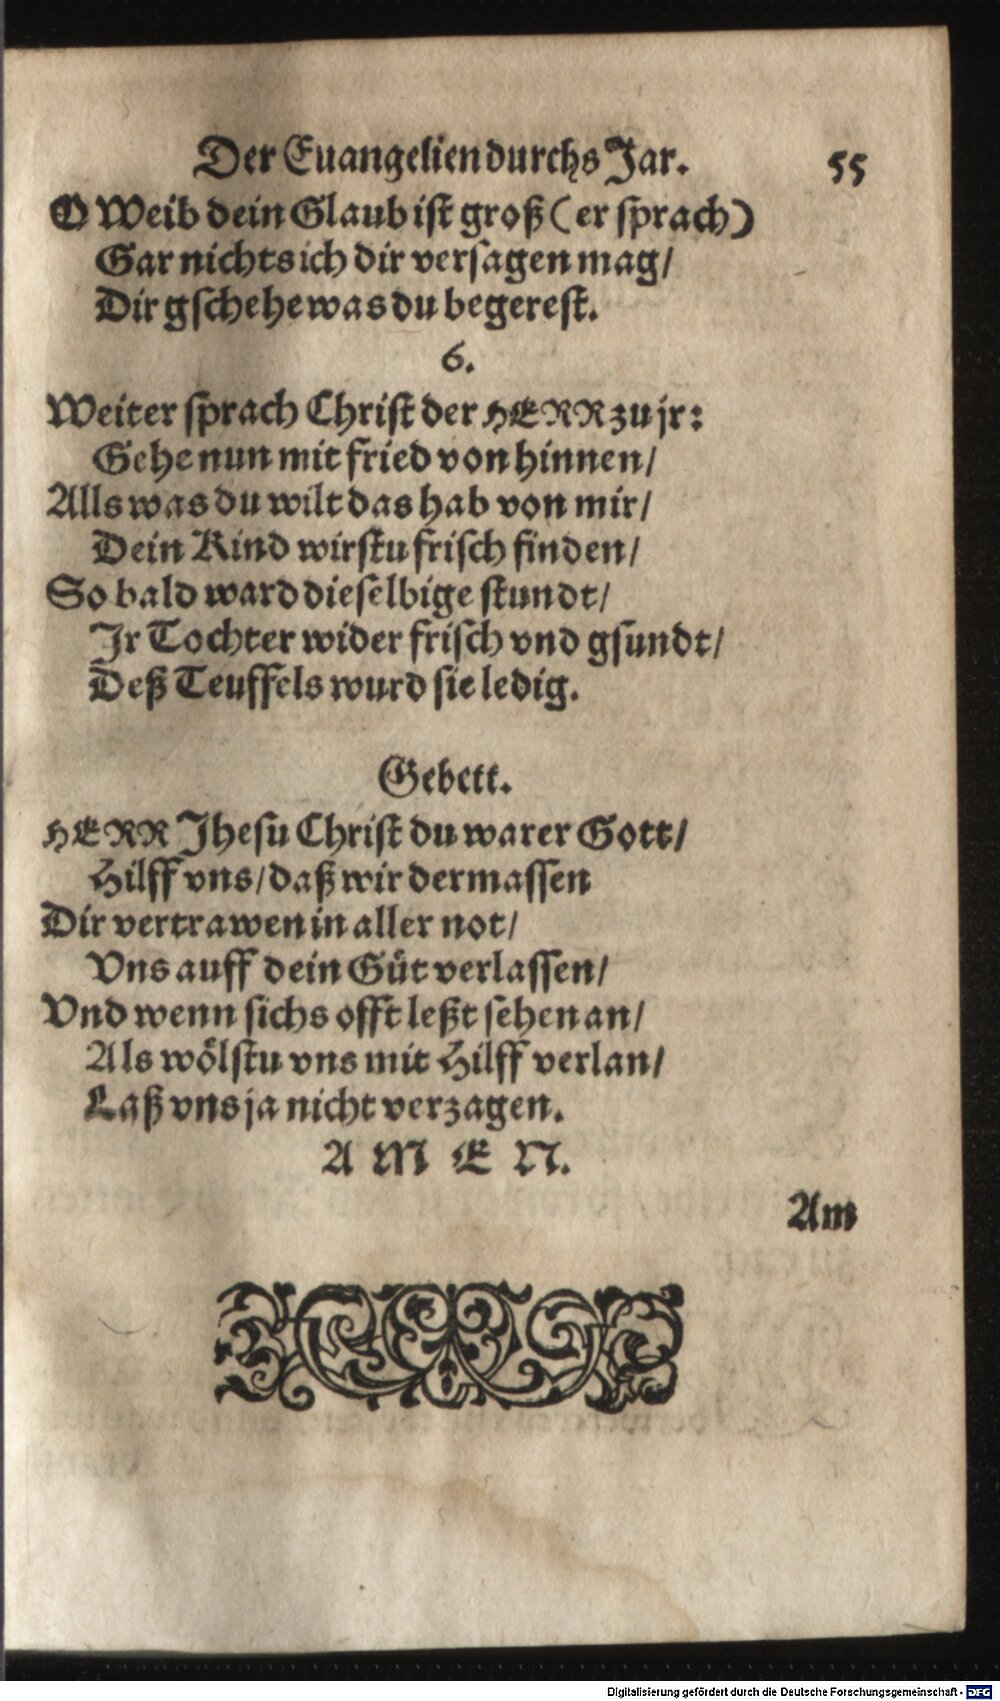 Der Euangelien durchs Jar. 55
O Weib dein Glaub ist groß (er sprach)
Gar nichts ich dir versagen mag/
Dir gschehe was du begerest.
6.
Weiter sprach Christ der HERR zu jr:
Gehe nun mit fried von hinnen/
Alls was du wilt das hab von mir/
Dein Kind wirstu frisch finden/
So bald ward dieselbige stundt/
Jr Tochter wider frisch vnd gsundt/
Deß Teuffels wurd sie ledig.
Gebett.
HERR Jhesu Christ du warer Gott/
Hilff vns/ daß wir dermassen
Dir vertrawen in aller not/
Vns auff dein Güt verlassen/
Vnd wenn sichs offt leßt sehen an/
Als wölstu vns mit Hilff verlan/
Laß vns ja nicht verzagen.
A M E N.
Am
Digitalisierung gefördert durch die Deutsche Forschungsgemeinschaft - DFG